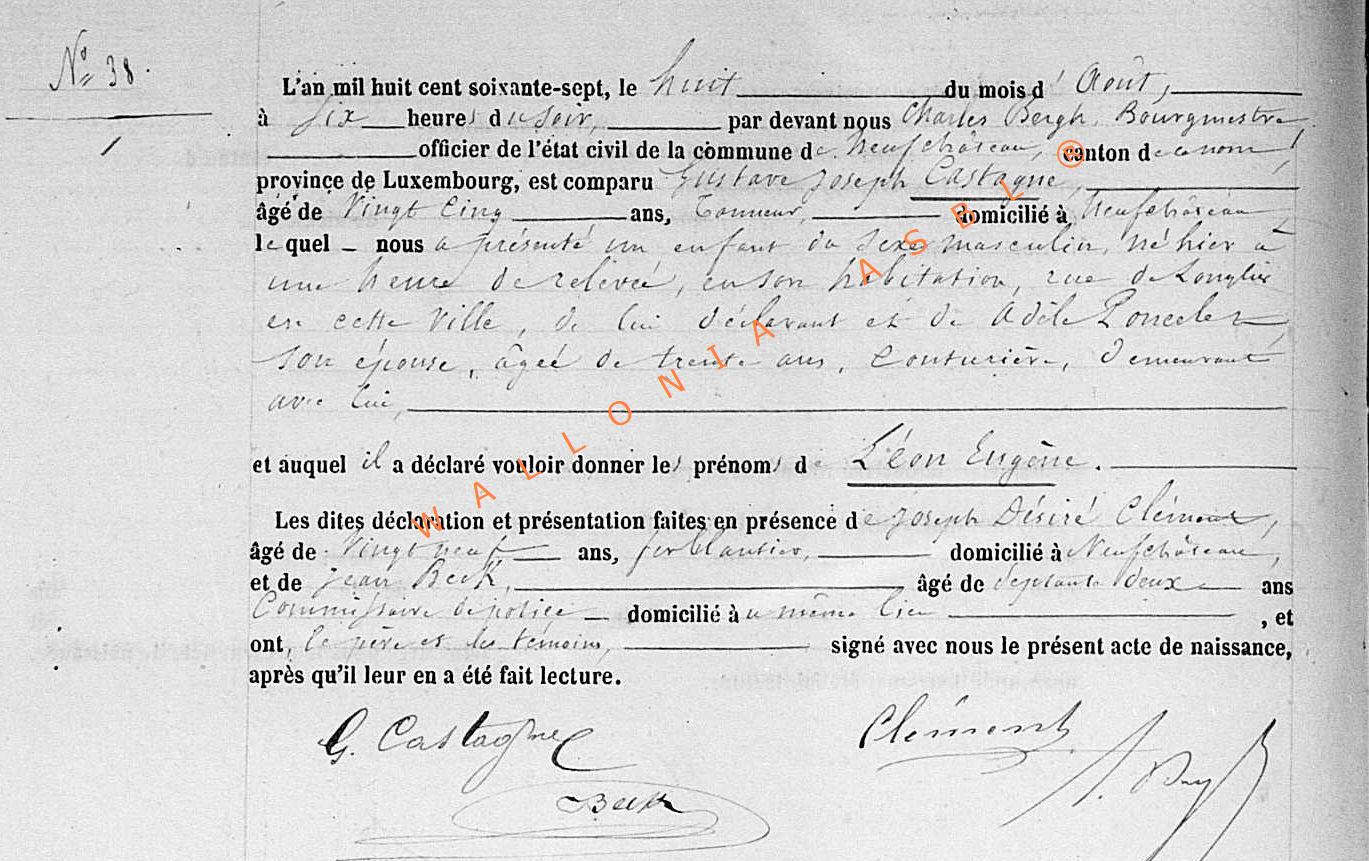 N° 38.
L'an mil huit cent soixante-sept, le huit du mois d' Août,
à six heures du soir, par devant nous Charles Bergh, Bourgmestre
officier de l'état civil de la commune de Neufchâteau, canton de ce nom,
province de Luxembourg, est comparu Gustave Joseph Castagne,
âgé de Vingt Cinq ans, Tanneur, domicilié à Neufchâteau,
lequel nous a présenté un enfant du sexe masculin, né hier à
une heure de relevée, en son habitation, rue de Longlier
en cette ville, de lui déclarant et de Adèle Poncelet
son épouse, âgée de trente ans, Couturière, demeurant
avec lui,
et auquel il a déclaré vouloir donner les prénoms de Léon Eugène.
Les dites déclaration et présentation faites en présence de Joseph Désiré Clément,
âgé de Vingt neuf ans, ferblantier, domicilié à Neufchâteau,
et de Jean Beck, âgé de septante deux ans
Commissaire de police domicilié au même lieu , et
ont, le père et les témoins, signé avec nous le présent acte de naissance,
après qu'il leur en a été fait lecture.
G. Castagne Clément
Beck
WALLONIA ASBL ®